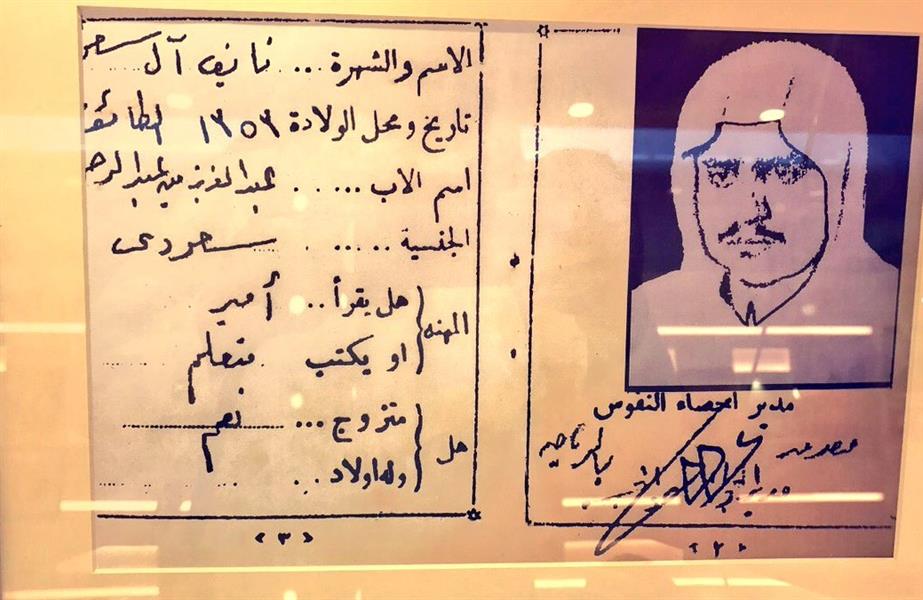 الاسم والشهرة ... نايف آل سعود
تاريخ ومحل الولادة ١٣٥٣ الطائف
اسم الاب ..... عبدالعزيز بن عبدالرحـ
الجنسية ..... سعودى
هل يقرأ .. أمير
المهنه
او يكتب متعلم
متزوج ... نعم
هل
وله اولاد ..
< ٣ >
مدير احصاء النفوس
بالرياض
< ٢ >